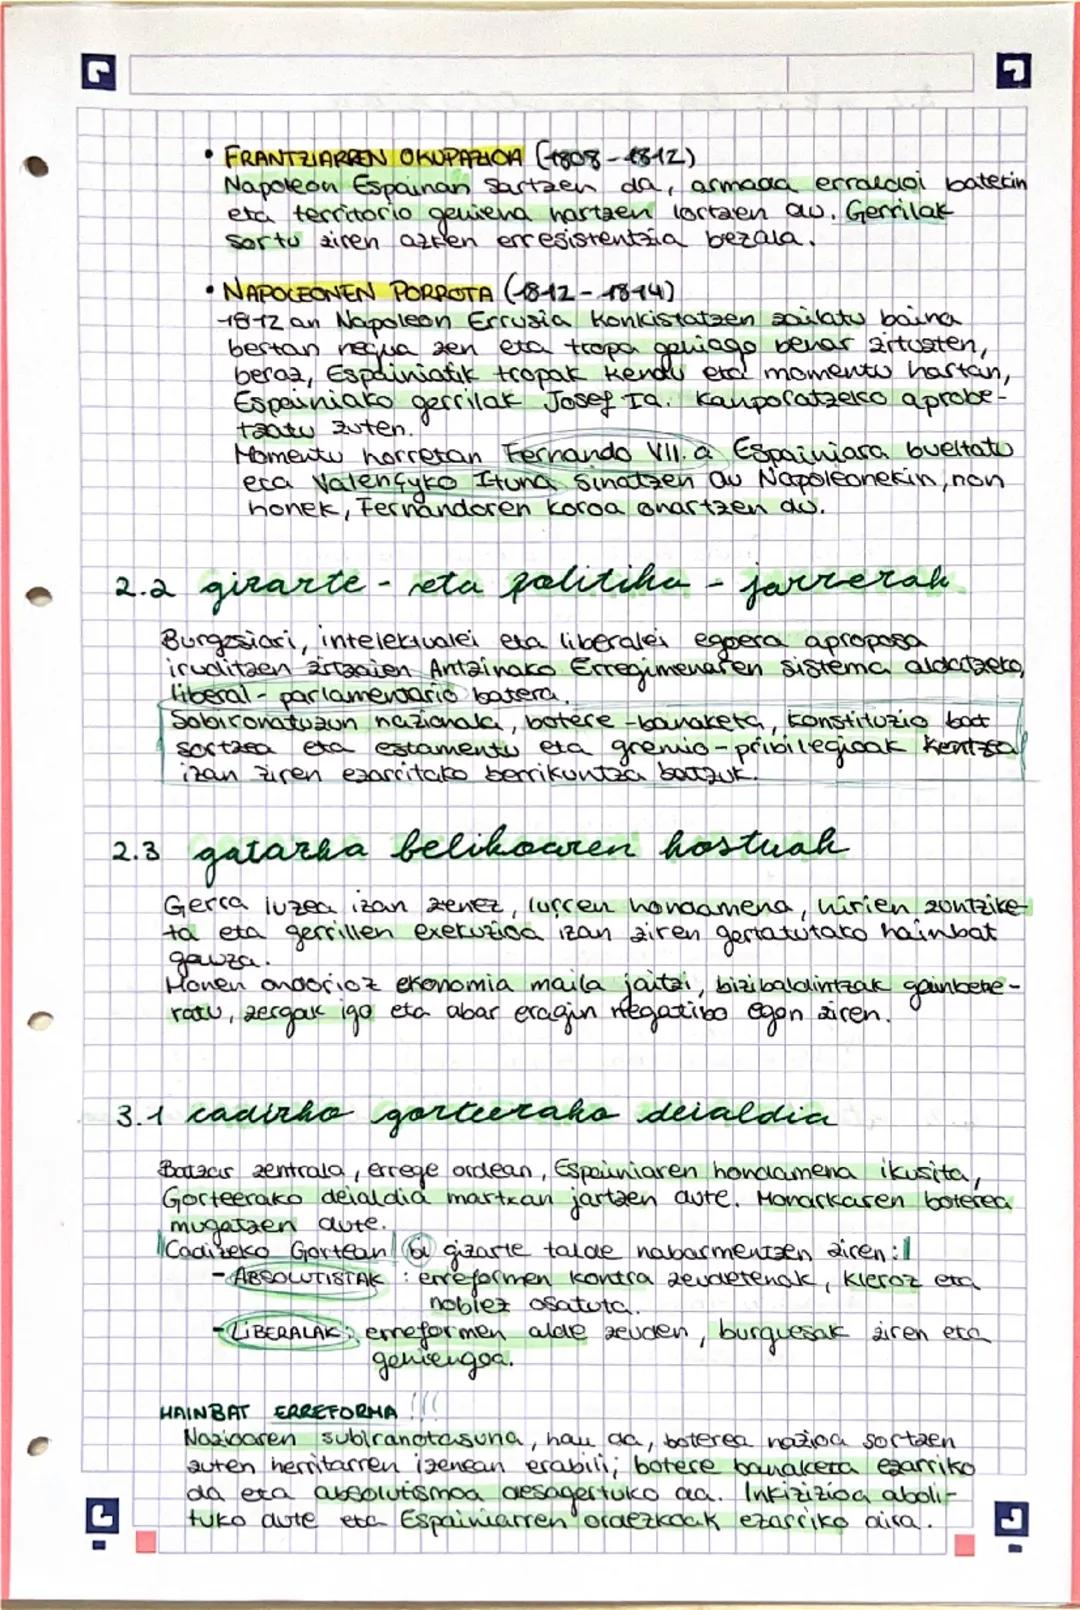 • FRANTZIARREN OKUPAZIOA (1808-1812)
Napoleon Espainan sartzen da, armada erraldoi batekin
eta territorio gehiena hartzen lortzen du. Gerrilak
sortu ziren azken erresistentzia bezala.
• NAPOLEONEN PORROTA (1812-1814)
1812an Napoleon Errusia konkistatzen sailatu baina
bertan negua zen eta tropa gehiago behar zituzten,
beraz, Espainiatik tropak kendu eta momentu hartan,
Espainiako gerrilak Josef Ia. kanporatzeko aprobe-
txatu zuten.
Momentu horretan Fernando VII.a Espainiara bueltatu
eta Valençyko Ituna sinatzen du Napoleonekin, non
honek, Fernandoren koroa onartzen du.
2.2 gizarte-eta politika-jarrerak
Burgesiari, intelektualei eta liberalei egoera aproposa
iruditzen zitzaien Antzinako Erregimenaren sistema aldatzeko,
liberal-parlamentario batera.
Sobironotuzun nazionala, botere-banaketa, konstituzio bat
sortzea eta estamentu eta gremio-pribilegioak kentzea
izan ziren ezarritako berrikuntza batzuk.
2.3 gatazka belikoaren kostuak
Gerra luzea izan zenez, lurren hondamena, hirien zuntzike-
ta eta gerrillen exekuzioa izan ziren gertatutako hainbat
gauza.
Honen ondorioz ekonomia maila jaitzi, bizibaldintzak gainbehe-
ratu, zergak igo eta abar eragin negatibo egon ziren.
3.1 cadizko gorteerako deialdia
Batzar zentrala, errege ordean, Espainiaren hondamena ikusita,
Gorteerako deialdia martxan jartzen dute. Monarkaren boterea
mugatzen dute.
Cadizeko Gortean bi gizarte talde nabarmentzen ziren:
- ABSOLUTISTAK : erreformen kontra zeudetenak, kleroz eta
noblez osatuta.
- LIBERALAK: erreformen alde zeuden, burguesak ziren eta
gehiengoa.
HAINBAT ERREFORMA !!!
Nazioaren subiranotasuna, hau da, boterea nazioa sortzen
zuten herritarren izenean erabili; botere banaketa ezarriko
da eta absolutismoa desagertuko da. Inkizizioa aboli-
tuko dute eta Espainiarren ordezkoak ezarriko dira.